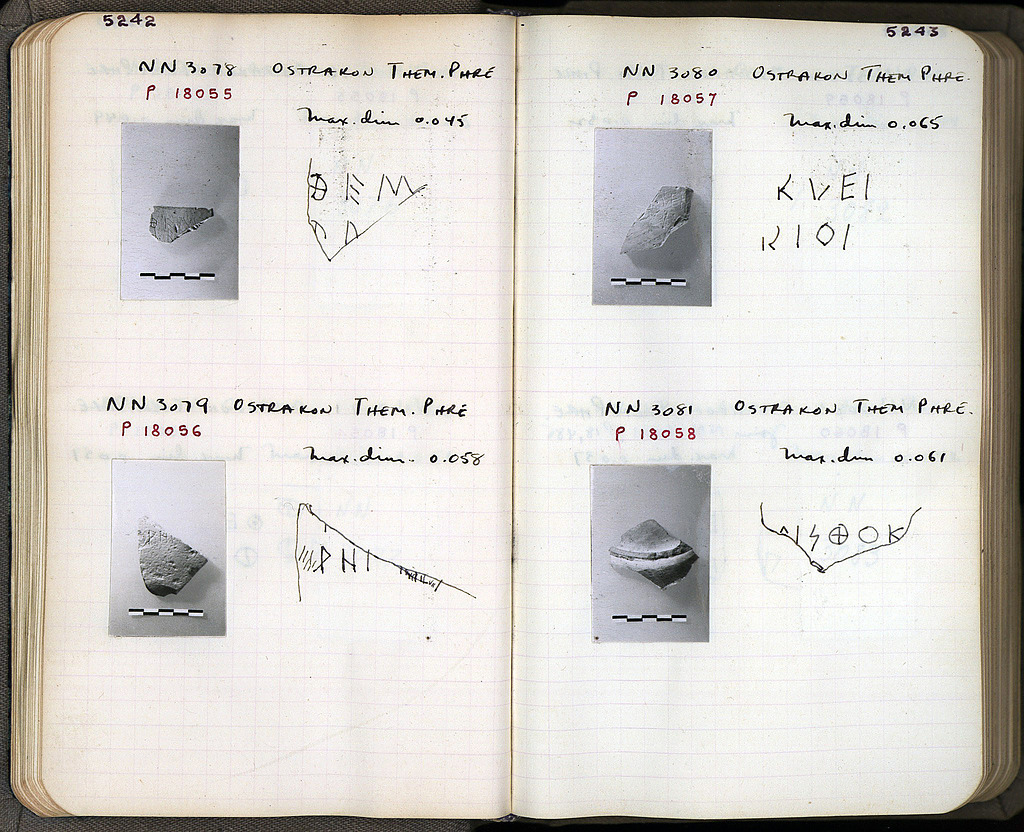 5242
NN 3078 OSTRAKON THEM. PHRE
P 18055
Max. dim 0.045
ΘEM
NN 3079 OSTRAKON THEM. PHRE
P 18056
Max. dim. 0.058
PHI
5243
NN 3080 OSTRAKON THEM PHRE.
P 18057
Max. dim 0.065
KVEI
KIOI
NN 3081 OSTRAKON THEM PHRE.
P 18058
Max. dim 0.061